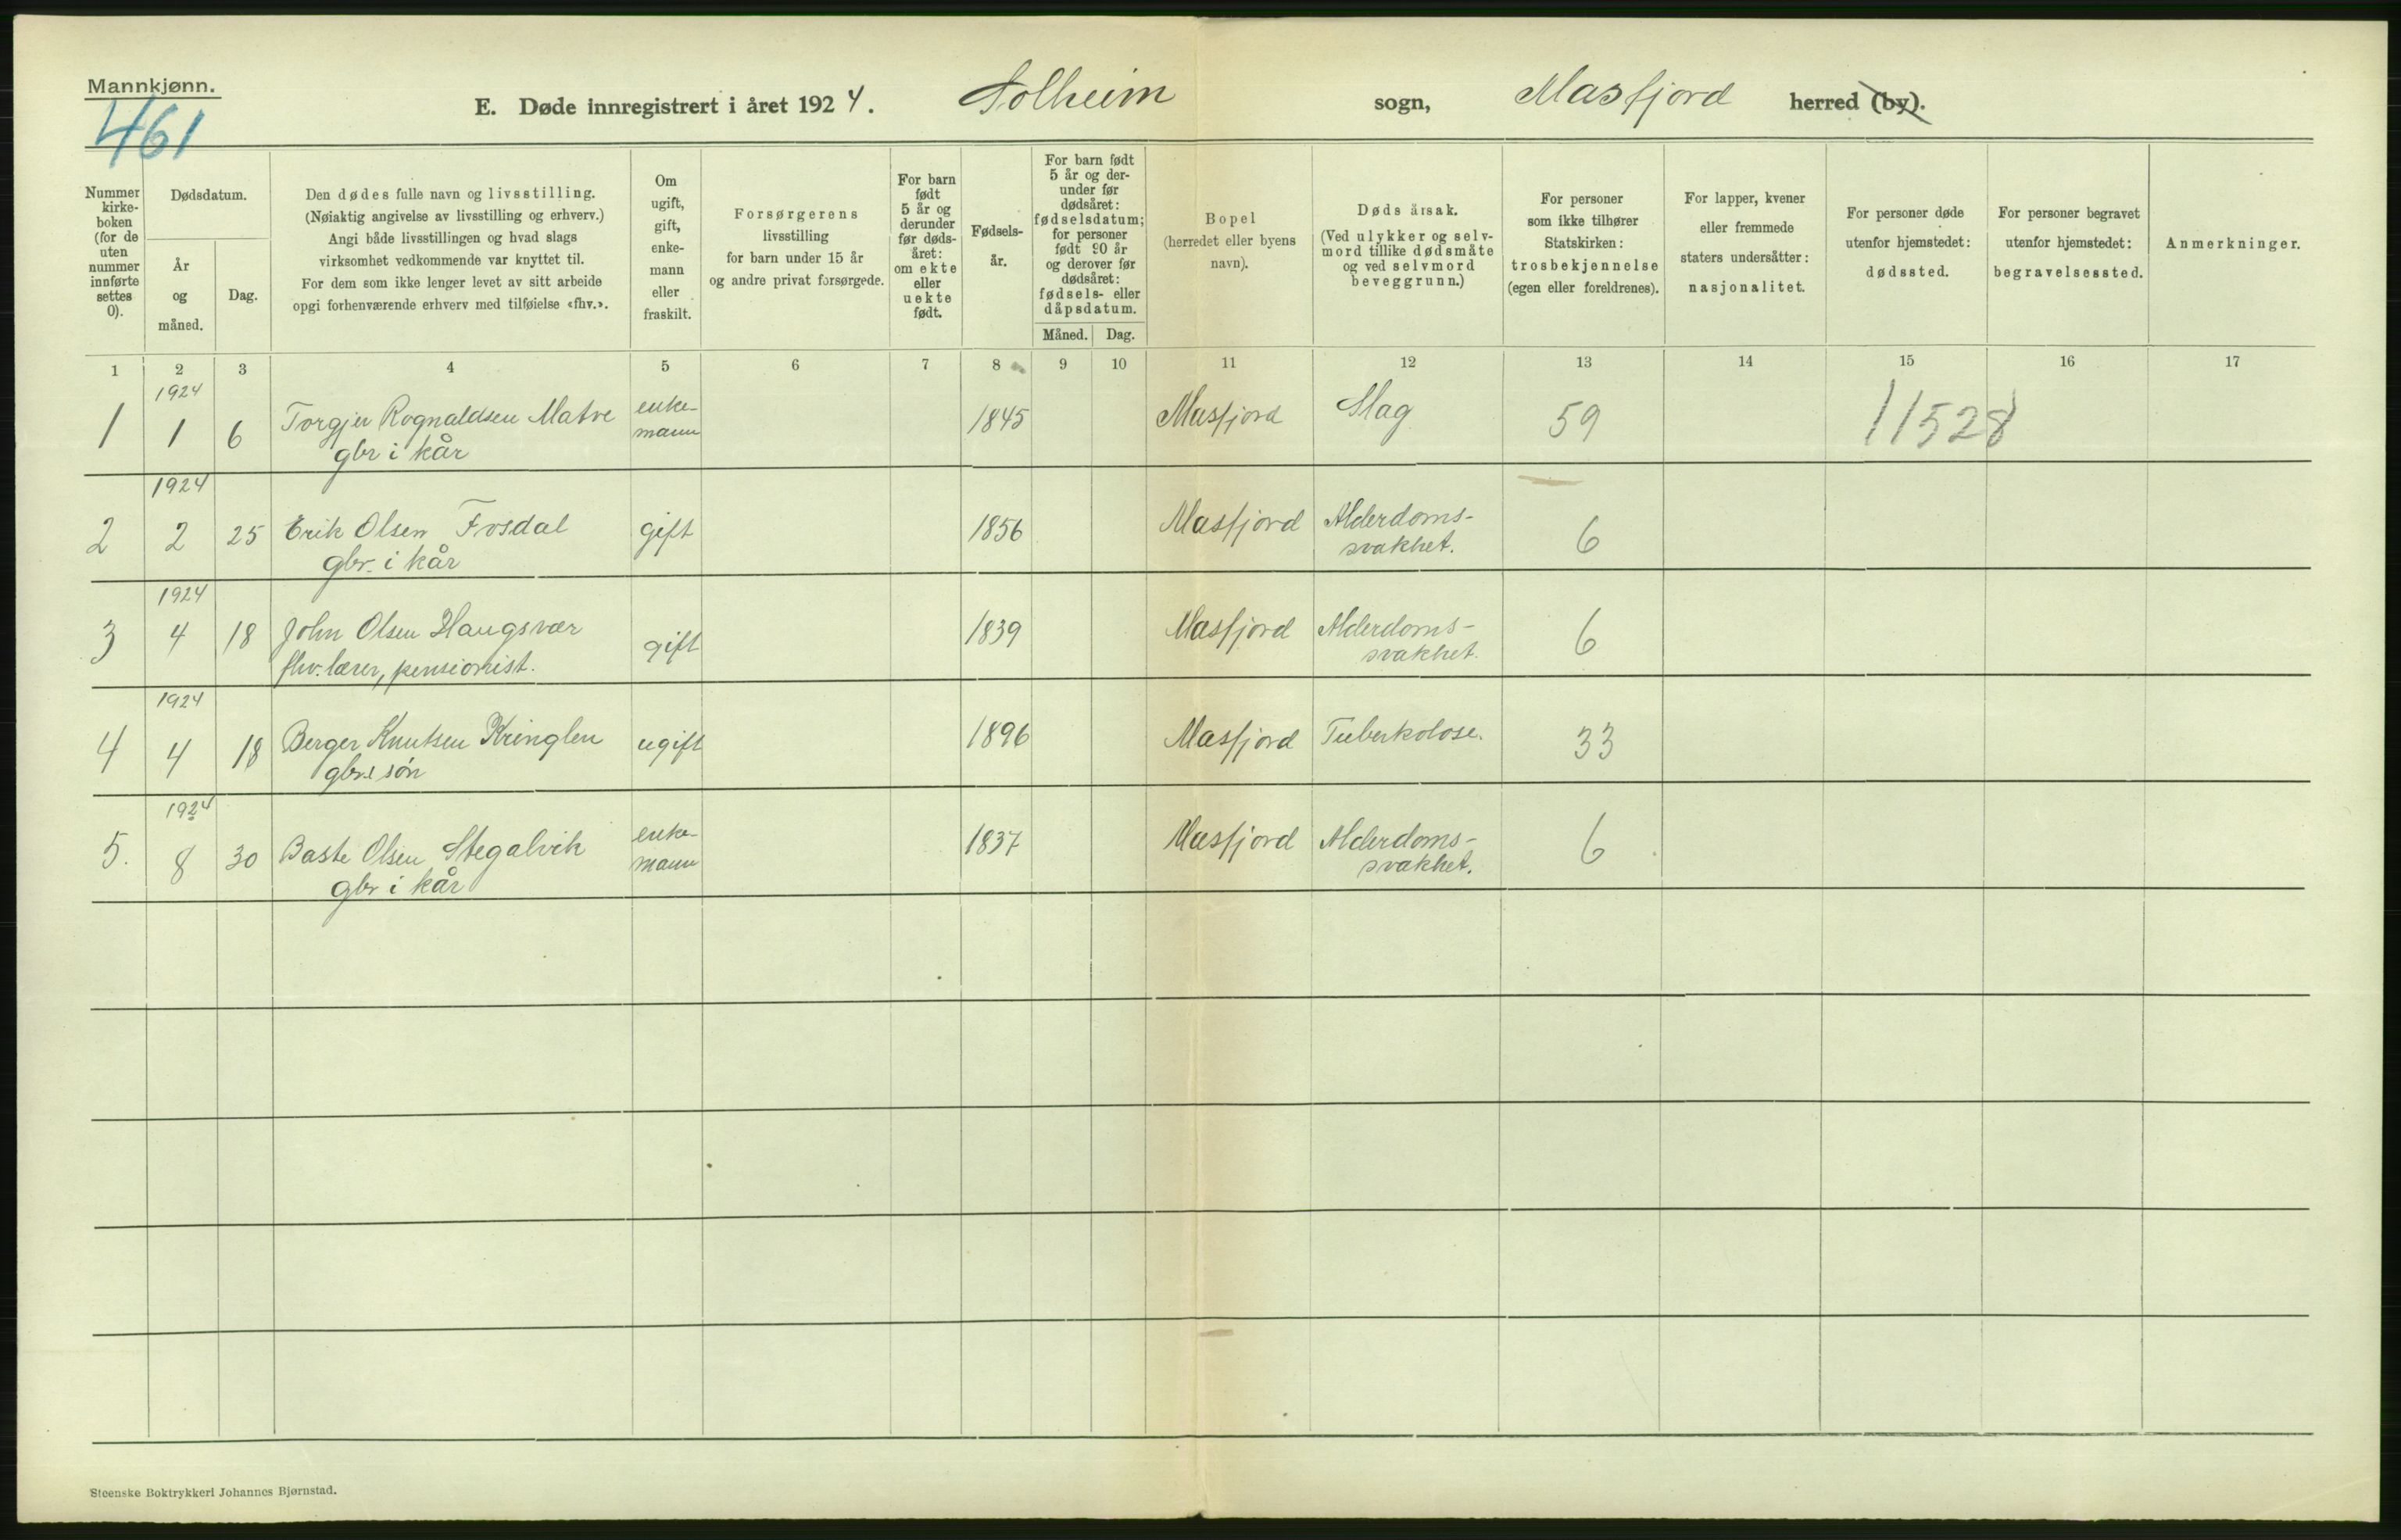 Mannkjønn.
461
E. Døde innregistrert i året 1924. Solheim sogn, Masfjord herred (by).
Nummer kirke-boken (for de uten nummer innførte settes 0).
Dødsdatum.
År og måned.
Dag.
Den dødes fulle navn og livsstilling.
(Nøiaktig angivelse av livsstilling og erhverv.)
Angi både livsstillingen og hvad slags
virksomhet vedkommende var knyttet til.
For dem som ikke lenger levet av sitt arbeide
opgi forhenværende erhverv med tilføielse «fhv.».
Om ugift, gift, enke-mann eller fraskilt.
Forsørgerens
livsstilling
for barn under 15 år
og andre privat forsørgede.
For barn født 5 år og derunder før døds-året: om ekte eller uekte født.
Fødsels-år.
For barn født 5 år og der-under før dødsåret: fødselsdatum; for personer født 90 år og derover før dødsåret: fødsels- eller dåpsdatum.
Måned. Dag.
Bopel
(herredet eller byens
navn).
Dødsårsak.
(Ved ulykker og selv-
mord tillike dødsmåte
og ved selvmord
beveggrunn.)
For personer
som ikke tilhører
Statskirken:
trosbekjennelse
(egen eller foreldrenes).
For lapper, kvener
eller fremmede
staters undersåtter:
nasjonalitet.
For personer døde
utenfor hjemstedet:
dødssted.
For personer begravet
utenfor hjemstedet:
begravelsessted.
Anmerkninger.
1 2 3 4 5 6 7 8 9 10 11 12 13 14 15 16 17
1924
1 1 6 Torgjer Rognaldsen Matre enke- 1845 Masfjord Slag 59 11528
gbr i kår mann
1924
2 2 25 Erik Olsen Fosdal gift 1856 Masfjord Alderdoms- 6
gbr. i kår svakhet.
1924
3 4 18 John Olsen Haugsvær gift 1839 Masfjord Alderdoms- 6
fhv. lærer, pensionist. svakhet.
1924
4 4 18 Berger Knutsen Kringlen ugift 1896 Masfjord Tuberkolose. 33
gbr.s søn
1924
5. 8 30 Baste Olsen Stegalvik enke- 1837 Masfjord Alderdoms- 6
gbr i kår mann svakhet.
Steenske Boktrykkeri Johannes Bjørnstad.